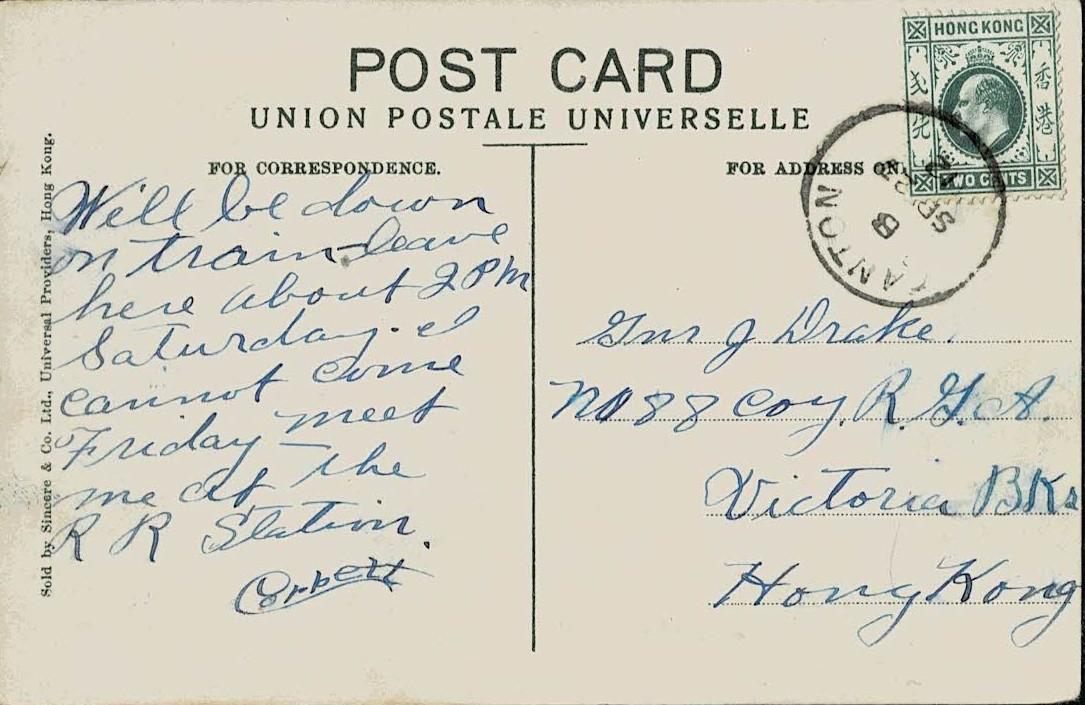 POST CARD
UNION POSTALE UNIVERSELLE
FOR CORRESPONDENCE.
FOR ADDRESS ON
Sold by Sincere & Co. Ltd., Universal Providers, Hong Kong.
HONG KONG
香港
TWO CENTS
CANTON
B
SP
Will be down
on train leave
here about 2 PM
Saturday. I
cannot come
Friday meet
me at the
R R Station.
Corbett
Gnr J Drake.
No 88 Coy. R. G. A.
Victoria BKs
Hong Kong